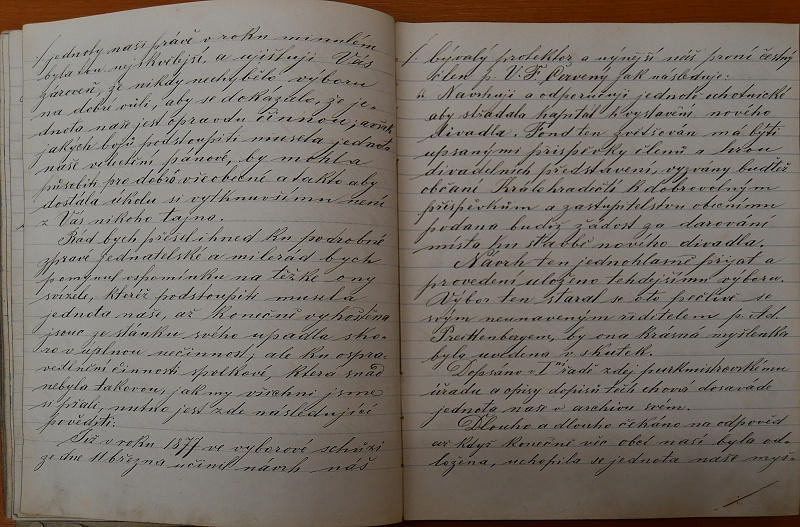 jednoty naší práce v roku minulém
byla tou nejskvělejší, a ujišťuji Vás
zároveň, že nikdy nechybělo výboru
na dobré vůli, aby se dokázalo, že je-
dnota naše jest opravdu činnou; avšak
jakých bojů podstoupiti musela jednota
naše velectění pánové, by mohla
působiti pro dobro všeobecné a takto aby
dostála úkolu si vytknuvšímu není
z Vás nikoho tajno.
Rád bych přešel ihned ku podrobné
zprávě jednatelské a milerád bych
pomynul vzpomínku na těžké ony
svízele, kteréž podstoupiti musela
jednota naše, až konečně vyhoštěna
jsouc ze stánku svého upadla sko-
ro v úplnou nečinnost; ale ku ospra-
vedlnění činnosti spolkové, která snad
nebyla takovou, jak my všichni jsme
si přáli, nutno jest zde následující
pověditi:
Již v roku 1877 ve výborové schůzi
ze dne 11 března učinil návrh náš
bývalý protektor a nynější náš první čestný
člen p. V. F. Červený jak následuje:
„Navrhuji a odporučuji jednotě ochotnické
aby střádala kapitál k vystavení nového
divadla. Fond ten zvětšován má býti
upsanými příspěvky členů a hrou
divadelních představení, vyzváni buďtež
občané Králehradečtí k dobrovolným
příspěvkům a zastupitelstvu obecnímu
podána budiž žádost za darování
místa ku stavbě nového divadla.
Návrh ten jednohlasně přijat a
provedení uloženo tehdejšímu výboru.
Výbor ten staral se oto pečlivě se
svým neunaveným ředitelem p. Ad.
by ona krásná myšlenka
byla uvedena v skutek.
Dopsáno zdej. purkmistrovskému
úřadu a opisy dopisů těch chová dosaváde
jednota naše v archivu svém.
Dlouho a dlouho čekáno na odpověď
až když konečně věc obcí naší byla od-
ložena, uchopila se jednota naše myš-